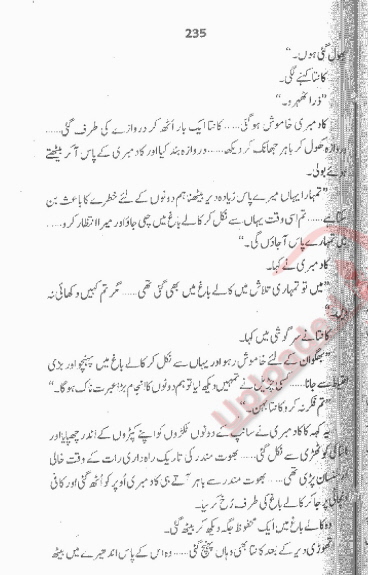 235
بھول گئی ہوں۔“
کانتا کہنے لگی۔
”ذرا ٹھہرو۔“
کادمبری خاموش ہو گئی..... کانتا ایک بار اٹھ کر دروازے کی طرف گئی.....
دروازہ کھول کر باہر جھانک کر دیکھا..... دروازہ بند کیا اور کادمبری کے پاس آ کر بیٹھتے
ہوئے بولی۔
”تمہارا یہاں میرے پاس زیادہ دیر بیٹھنا ہم دونوں کے لئے خطرے کا باعث بن
سکتا ہے..... تم اسی وقت یہاں سے نکل کر کالے باغ میں چلی جاؤ اور میرا انتظار کرو.....
میں تمہارے پاس آ جاؤں گی۔“
کادمبری نے کہا۔
”میں تو تمہاری تلاش میں کالے باغ میں بھی گئی تھی..... مگر تم کہیں دکھائی نہ
کانتا نے سرگوشی میں کہا۔
”بھگوان کے لئے خاموش رہو اور یہاں سے نکل کر کالے باغ میں پہنچو اور بڑی
احتیاط سے جانا..... کسی چڑیل نے تمہیں دیکھ لیا تو ہم دونوں کا انجام بڑا عبرت ناک ہو گا۔“
”تم فکر نہ کرو کانتا بہن۔“
یہ کہہ کر کادمبری نے سانپ کے دونوں ٹکڑوں کو اپنے کپڑوں کے اندر چھپایا اور
کوٹھڑی سے نکل گئی..... بھوت مندر کی تاریک راہ داری رات کے وقت خالی
سنسان پڑی تھی..... بھوت مندر سے باہر آتے ہی کادمبری اوپر کو اٹھ گئی اور کافی
پر جا کر کالے باغ کی طرف رخ کر لیا۔
وہ کالے باغ میں ایک محفوظ جگہ دیکھ کر بیٹھ گئی۔
تھوڑی دیر کے بعد کانتا بھی وہاں پہنچ گئی..... وہ اس کے پاس اندھیرے میں بیٹھ
Uploaded